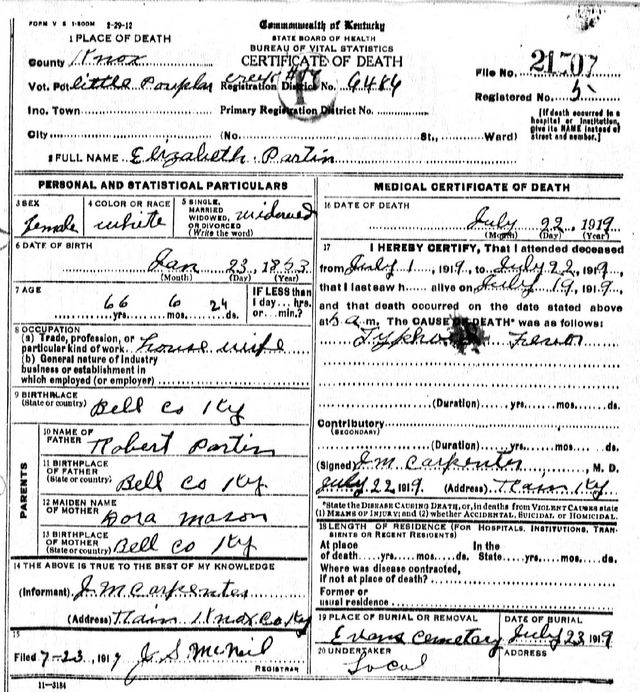 FORM V S 1-500M 8-29-12
Commonwealth of Kentucky
STATE BOARD OF HEALTH
BUREAU OF VITAL STATISTICS
CERTIFICATE OF DEATH
1 PLACE OF DEATH
County Knox
Vot. Pct little Poplar creek Registration District No. 6486
Inc. Town Primary Registration District No.
City (No. St., Ward)
File No. 21707
Registered No. 5
[If death occurred in a hospital or institution, give its NAME instead of street and number.]
2 FULL NAME Elizabeth Partin
PERSONAL AND STATISTICAL PARTICULARS
3 SEX female
4 COLOR OR RACE white
5 SINGLE, MARRIED WIDOWED, OR DIVORCED (Write the word) widowed
6 DATE OF BIRTH
Jan 23, 1853
(Month) (Day) (Year)
7 AGE
66 yrs. 6 mos. 24 ds.
IF LESS than 1 day... hrs. or... min.?
8 OCCUPATION
(a) Trade, profession, or particular kind of work house wife
(b) General nature of industry business or establishment in which employed (or employer)
9 BIRTHPLACE (State or country) Bell Co Ky
PARENTS
10 NAME OF FATHER Robert Partin
11 BIRTHPLACE OF FATHER (State or country) Bell Co Ky
12 MAIDEN NAME OF MOTHER Dora Mason
13 BIRTHPLACE OF MOTHER (State or country) Bell Co Ky
14 THE ABOVE IS TRUE TO THE BEST OF MY KNOWLEDGE
(Informant) J. M Carpenter
(Address) Knox Co Ky
15
Filed 7-23, 1919 J. S. McNeil
REGISTRAR
11-3184
MEDICAL CERTIFICATE OF DEATH
16 DATE OF DEATH
July 22 1919
(Month) (Day) (Year)
17 I HEREBY CERTIFY, That I attended deceased
from July 1, 1919, to July 22, 1919,
that I last saw h alive on July 19, 1919,
and that death occurred on the date stated above
at a m. The CAUSE OF DEATH* was as follows:
Fever
(Duration) yrs. mos. ds.
Contributory
(SECONDARY)
(Duration) yrs. mos. ds.
(Signed) J. M Carpenter, M. D.
July 22 1919 (Address) Ky
*State the DISEASE CAUSING DEATH, or, in deaths from VIOLENT CAUSES state (1) MEANS OF INJURY; and (2) whether ACCIDENTAL, SUICIDAL or HOMICIDAL.
18 LENGTH OF RESIDENCE (FOR HOSPITALS, INSTITUTIONS, TRANSIENTS OR RECENT RESIDENTS)
At place of death yrs. mos. ds. In the State yrs. mos. ds.
Where was disease contracted, if not at place of death?
Former or usual residence
19 PLACE OF BURIAL OR REMOVAL
Evans Cemetary
DATE OF BURIAL
July 23 1919
20 UNDERTAKER
Local
ADDRESS